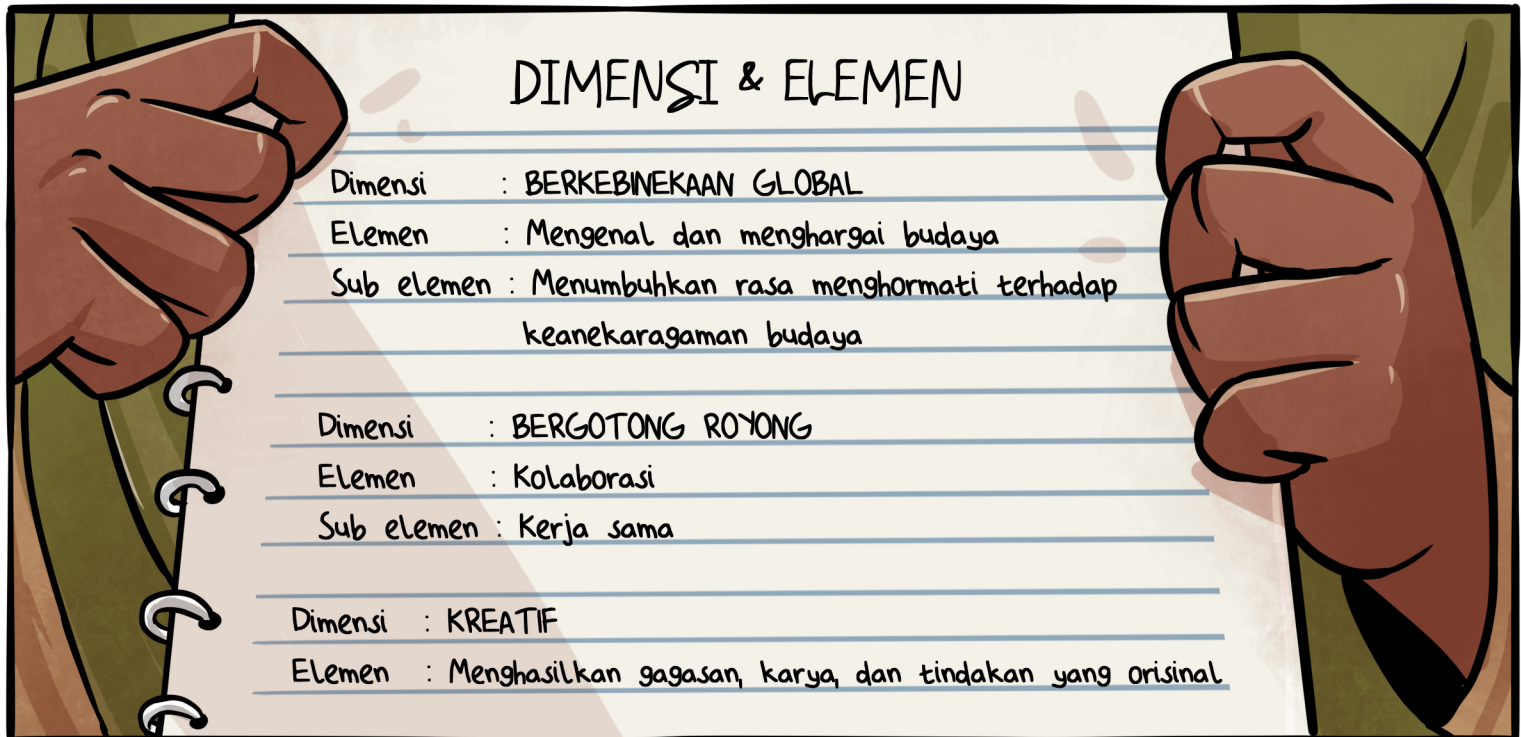 DIMENSI & ELEMEN
Dimensi : BERKEBINEKAAN GLOBAL
Elemen : Mengenal dan menghargai budaya
Sub elemen : Menumbuhkan rasa menghormati terhadap
keanekaragaman budaya
Dimensi : BERGOTONG ROYONG
Elemen : Kolaborasi
Sub elemen : Kerja sama
Dimensi : KREATIF
Elemen : Menghasilkan gagasan, karya, dan tindakan yang orisinal